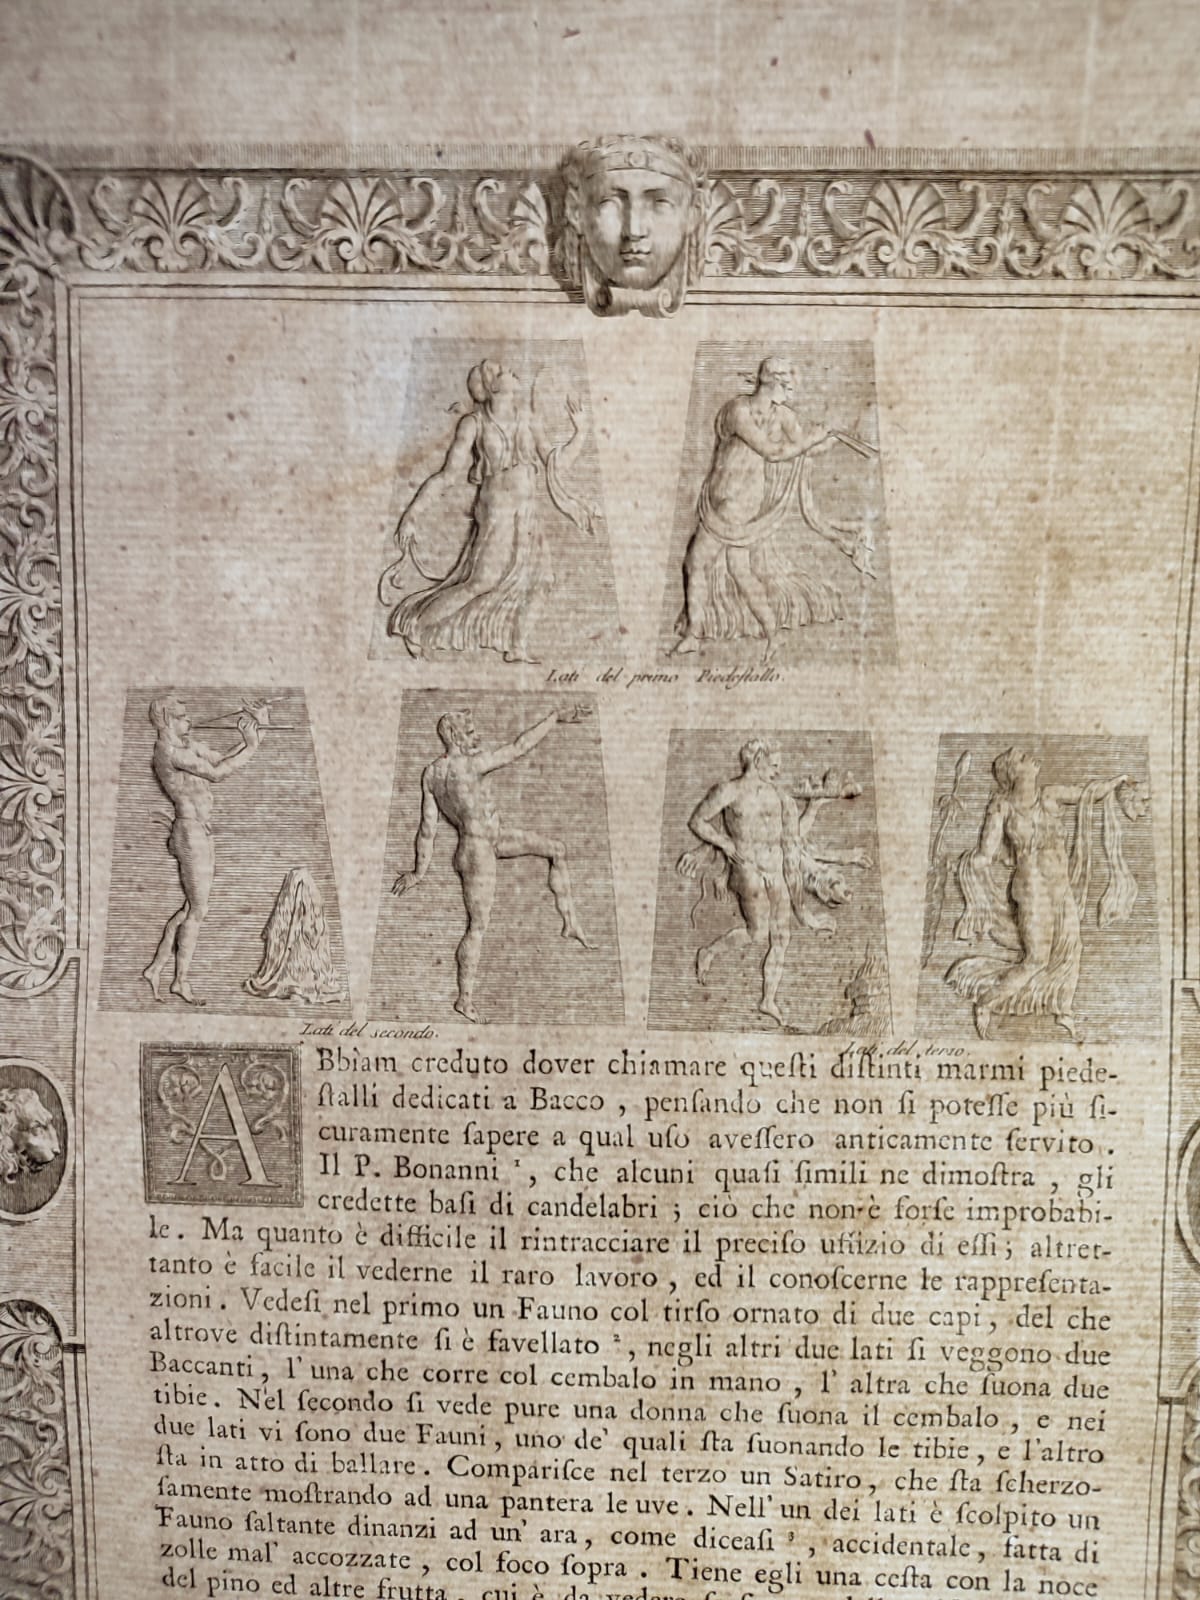 Lati del primo Piedestallo.
Lati del secondo.
Lati del terzo.
ABbìam creduto dover chiamare queſti diſtinti marmi piede-
ſtalli dedicati a Bacco , penſando che non ſi poteſſe più ſi-
curamente ſapere a qual uſo aveſſero anticamente ſervito .
Il P. Bonanni ¹ , che alcuni quaſi ſimili ne dimoſtra , gli
credette baſi di candelabri ; ciò che non è forſe improbabi-
le . Ma quanto è difficile il rintracciare il preciſo uffizio di eſſi ; altret-
tanto è facile il vederne il raro lavoro , ed il conoſcerne le rappreſenta-
zioni . Vedeſi nel primo un Fauno col tirſo ornato di due capi , del che
altrove diſtintamente ſi è favellato ² , negli altri due lati ſi veggono due
Baccanti , l' una che corre col cembalo in mano , l' altra che ſuona due
tibie . Nel ſecondo ſi vede pure una donna che ſuona il cembalo , e nei
due lati vi ſono due Fauni , uno de' quali ſta ſuonando le tibie , e l'altro
ſta in atto di ballare . Compariſce nel terzo un Satiro , che ſta ſcherzo-
ſamente moſtrando ad una pantera le uve . Nell' un dei lati è ſcolpito un
Fauno ſaltante dinanzi ad un' ara , come diceaſi ³ , accidentale , fatta di
zolle mal' accozzate , col foco ſopra . Tiene egli una ceſta con la noce
del pino ed altre frutta , cui è da vedere